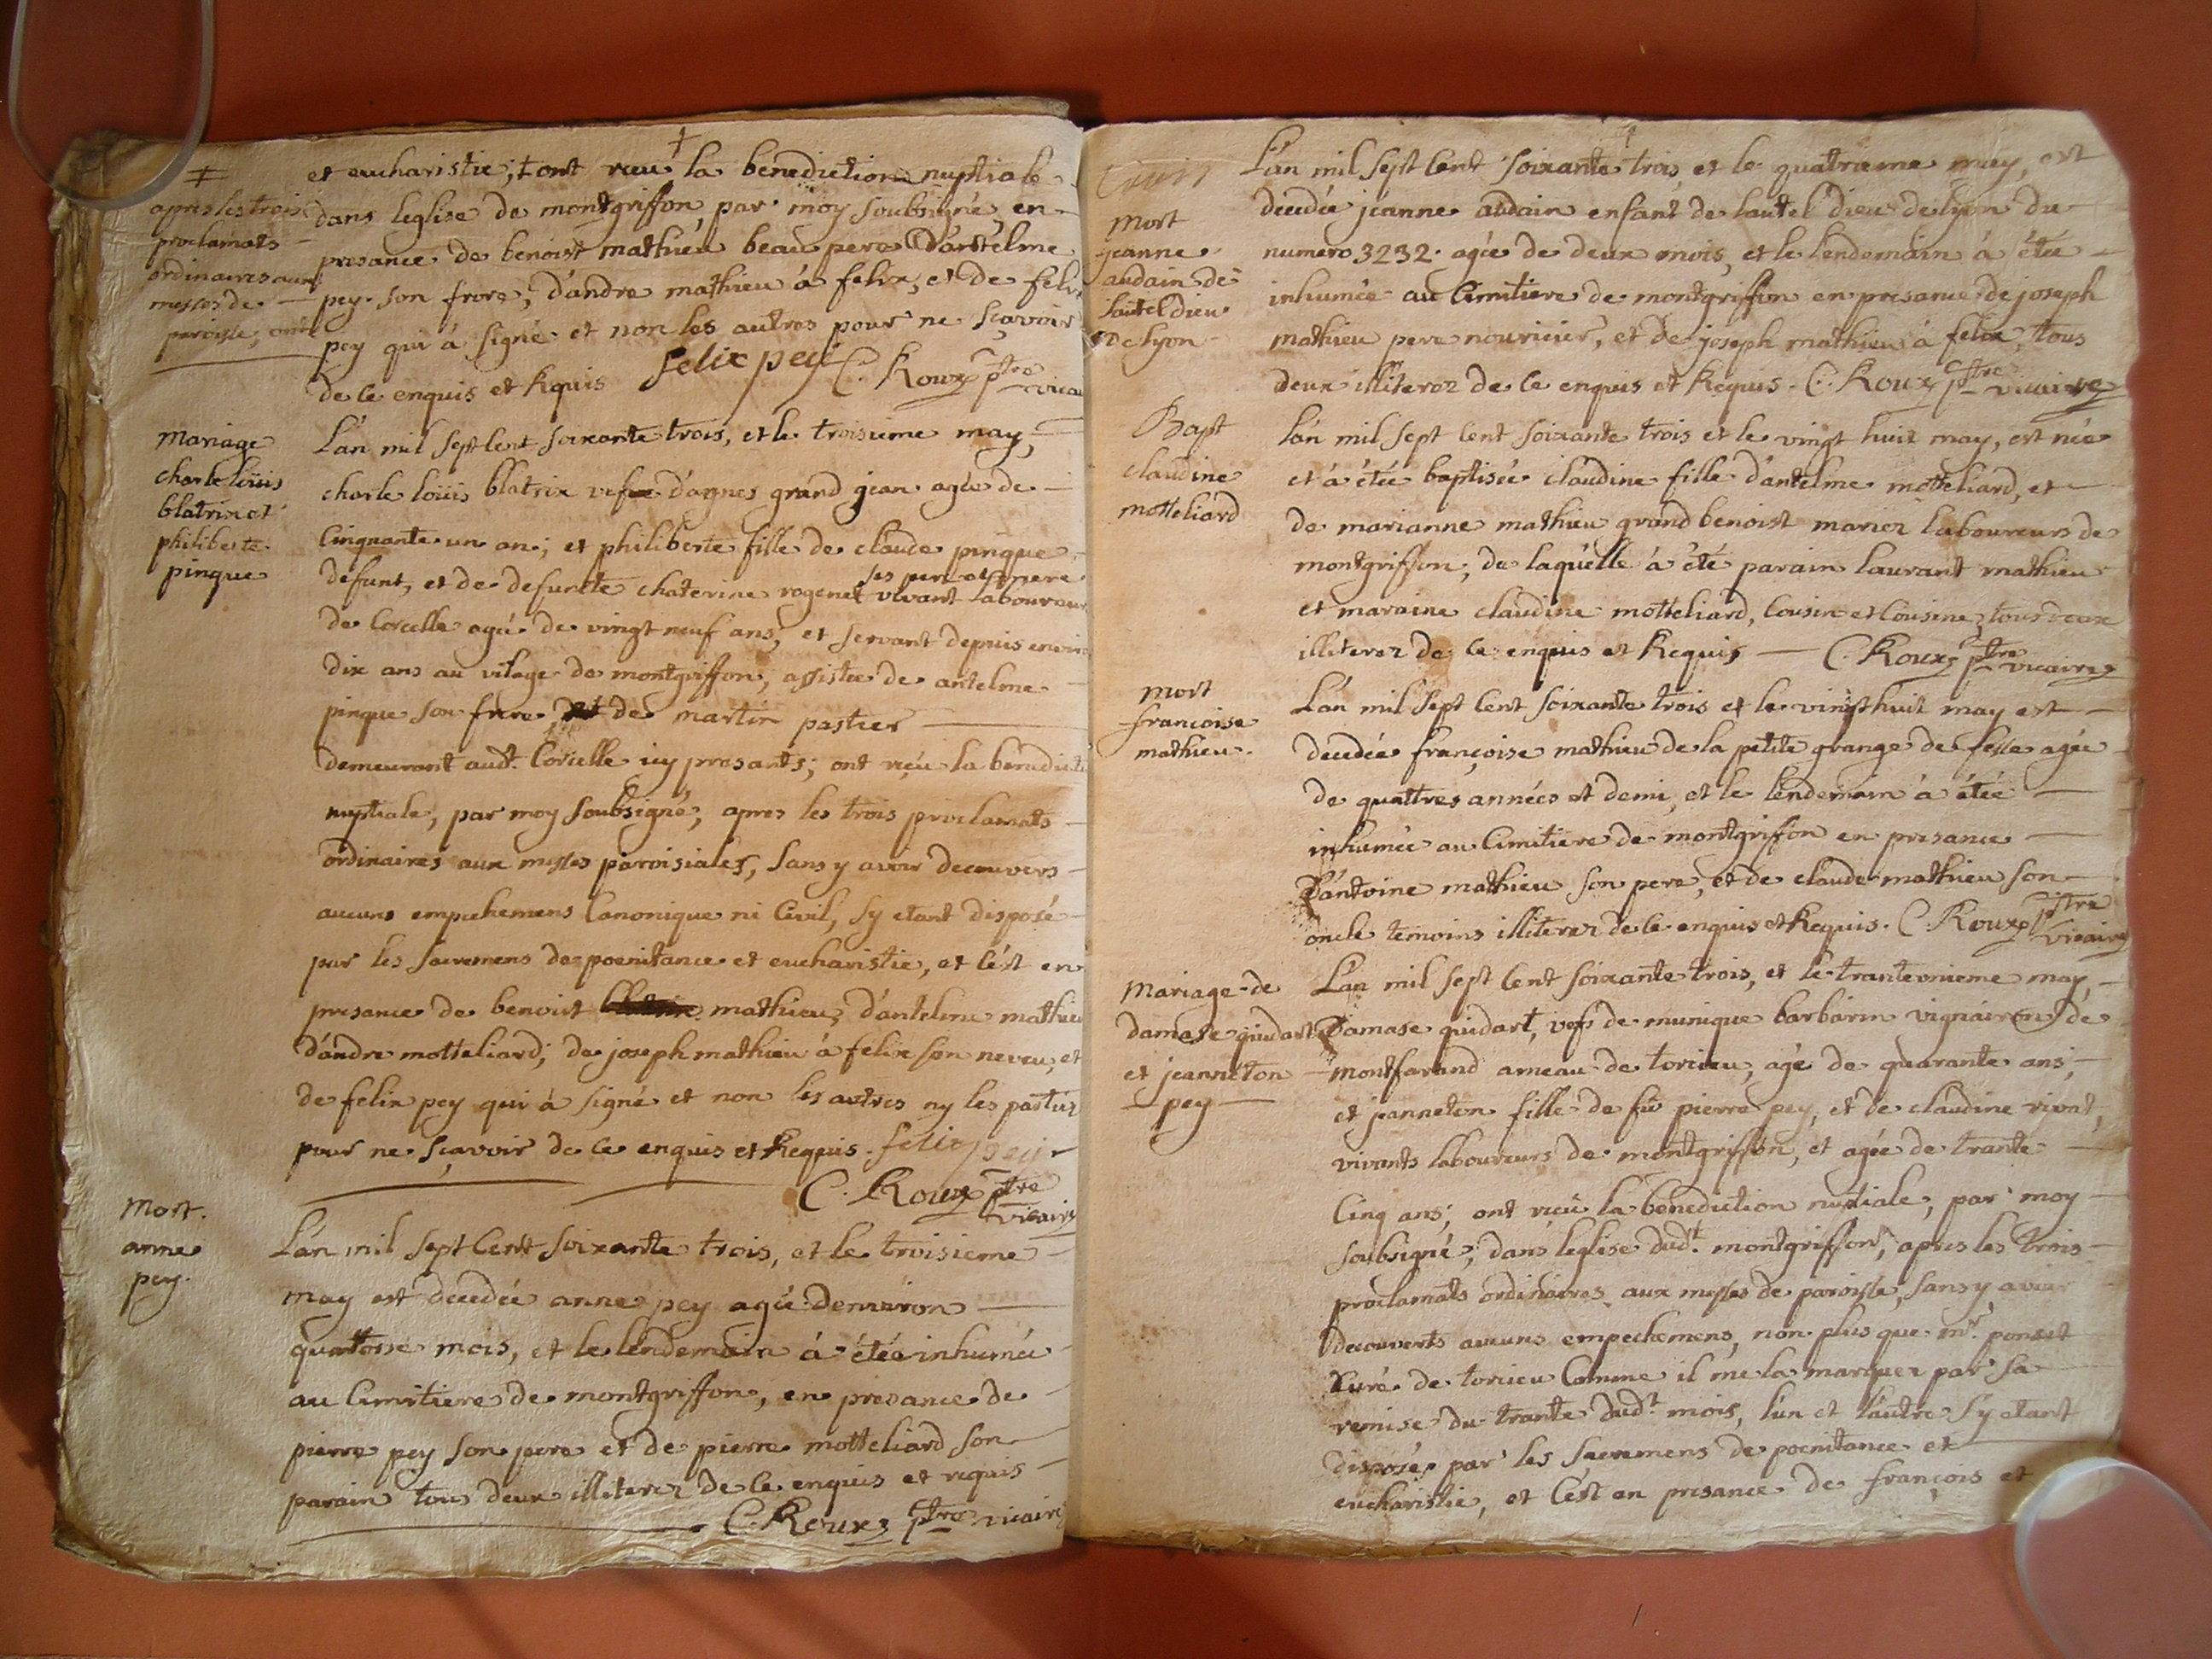 #
apres les trois
proclamats
ordinaires aux
messes de
paroisse,
et eucharistie; ‡ ont reeu la benediction nuptiale
dans leglise de montgriffon, par moy soubsigné, en
presance de benoist mathieu beau pere d'antelme
pey son frere, d'andre mathieu á felix, et de felix
pey qui á signé et non les autres pour ne sçavoir
de ce enquis et Requis felix pey C. Roux ptre vicai
mariage
charle loüis
blatrix et
philiberte
pinque
L'an mil sept Cent soixante trois, et le troisieme may,
charle loüis blatrix vefve d'agnes grand jean agée de
Cinquante un an; et philiberte fille de claude pinque
defunt, et de defuncte chaterine rogenet ses pere et mere vivant laboureur
de Corcelle agée de vingt neuf ans, et servant depuis environ
dix ans au vilage de montgriffon, assistée de antelme
pinque son frere, de martin pastier
demeurant audt. Corcelle icy presants; ont reçu la benedicti
nuptiale, par moy soubsigné, apres les trois proclamats
ordinaires aux messes paroisiales, sans y avoir decouvers
aucuns empechemens Canonique ni Civil, sy etant disposé
par les sacremens de poenitance et eucharistie, et c'est en
presance de benoist mathieu, d'antelme mathieu
d'andre motteliard, de joseph mathieu á felix son neveu, et
de felix pey qui á signé et non les autres ny les parties
pour ne sçavoir de ce enquis et Requis. felix pey
C. Roux ptre vicaire
Mort.
anne
pey.
L'an mil sept Cent soixante trois, et le troisieme
may est decedée anne pey agée denviron
quattorse mois, et le lendemain á étée inhumée
au Cimitiere de montgriffon, en presance de
pierre pey son pere et de pierre motteliard son
parain tous deux illiterez de ce enquis et requis
C. Roux ptre vicaire
mort
jeanne
audain de
l'autel dieu
De lyon
L'an mil sept Cent soixante trois, et le quatrieme may, est
decedée jeanne audain enfant de lautel dieu de lyon du
numero 3232. agée de deux mois, et le lendemain á étée
inhumée au Cimitiere de montgriffon en presance de joseph
mathieu pere nouricier, et de joseph mathieu á felix, tous
deux illiterez de ce enquis et Requis. C. Roux ptre vicaire
Bapt
claudine
motteliard
L'an mil sept Cent soixante trois et le vingt huit may, est née
et á étée baptisée claudine fille d'antelme motteliard, et
de marianne mathieu grand benoist mariez laboureurs de
montgriffon, de laquelle á été parain laurant mathieu
et maraine claudine motteliard, Cousin et Cousine, tous deux
illiterez de ce enquis et Requis C. Roux ptre vicaire
mort
françoise
mathieu.
L'an mil sept Cent soixante trois et le vingt huit may est
decedée françoise mathieu de la petite grange de fesse agée
de quattres années et demi, et le lendemain á étée
inhumée au Cimitiere de montgriffon en presance
D'antoine mathieu son pere, et de claude mathieu son
oncle temoins illiterez de ce enquis et Requis. C. Roux ptre vicaire
mariage de
damase guidart
et jeanneton
pey
L'an mil sept Cent soixante trois, et le trante unieme may,
Damase guidart, vefs de munique barbarin vignairon de
montfarand ameau de torcieu, agé de quarante ans,
et janneton fille de fû pierre pey, et de claudine
vivants laboureurs de montgriffon, et agée de trante
Cinq ans; ont reçu la benediction nuptiale, par moy
soubsigné; dans leglise dudt. montgriffon, apres les trois
proclamats ordinaires aux messes de paroisse, sans y avoir
decouverts aucuns empechemens, non plus que mr. ponset
Curé de torcieu Comme il me la marquer par sa
remise du trante dudt. mois, l'un et l'autre sy etant
disposée par les sacremens de poenitance et
eucharistie, et Cest en presance de françois et